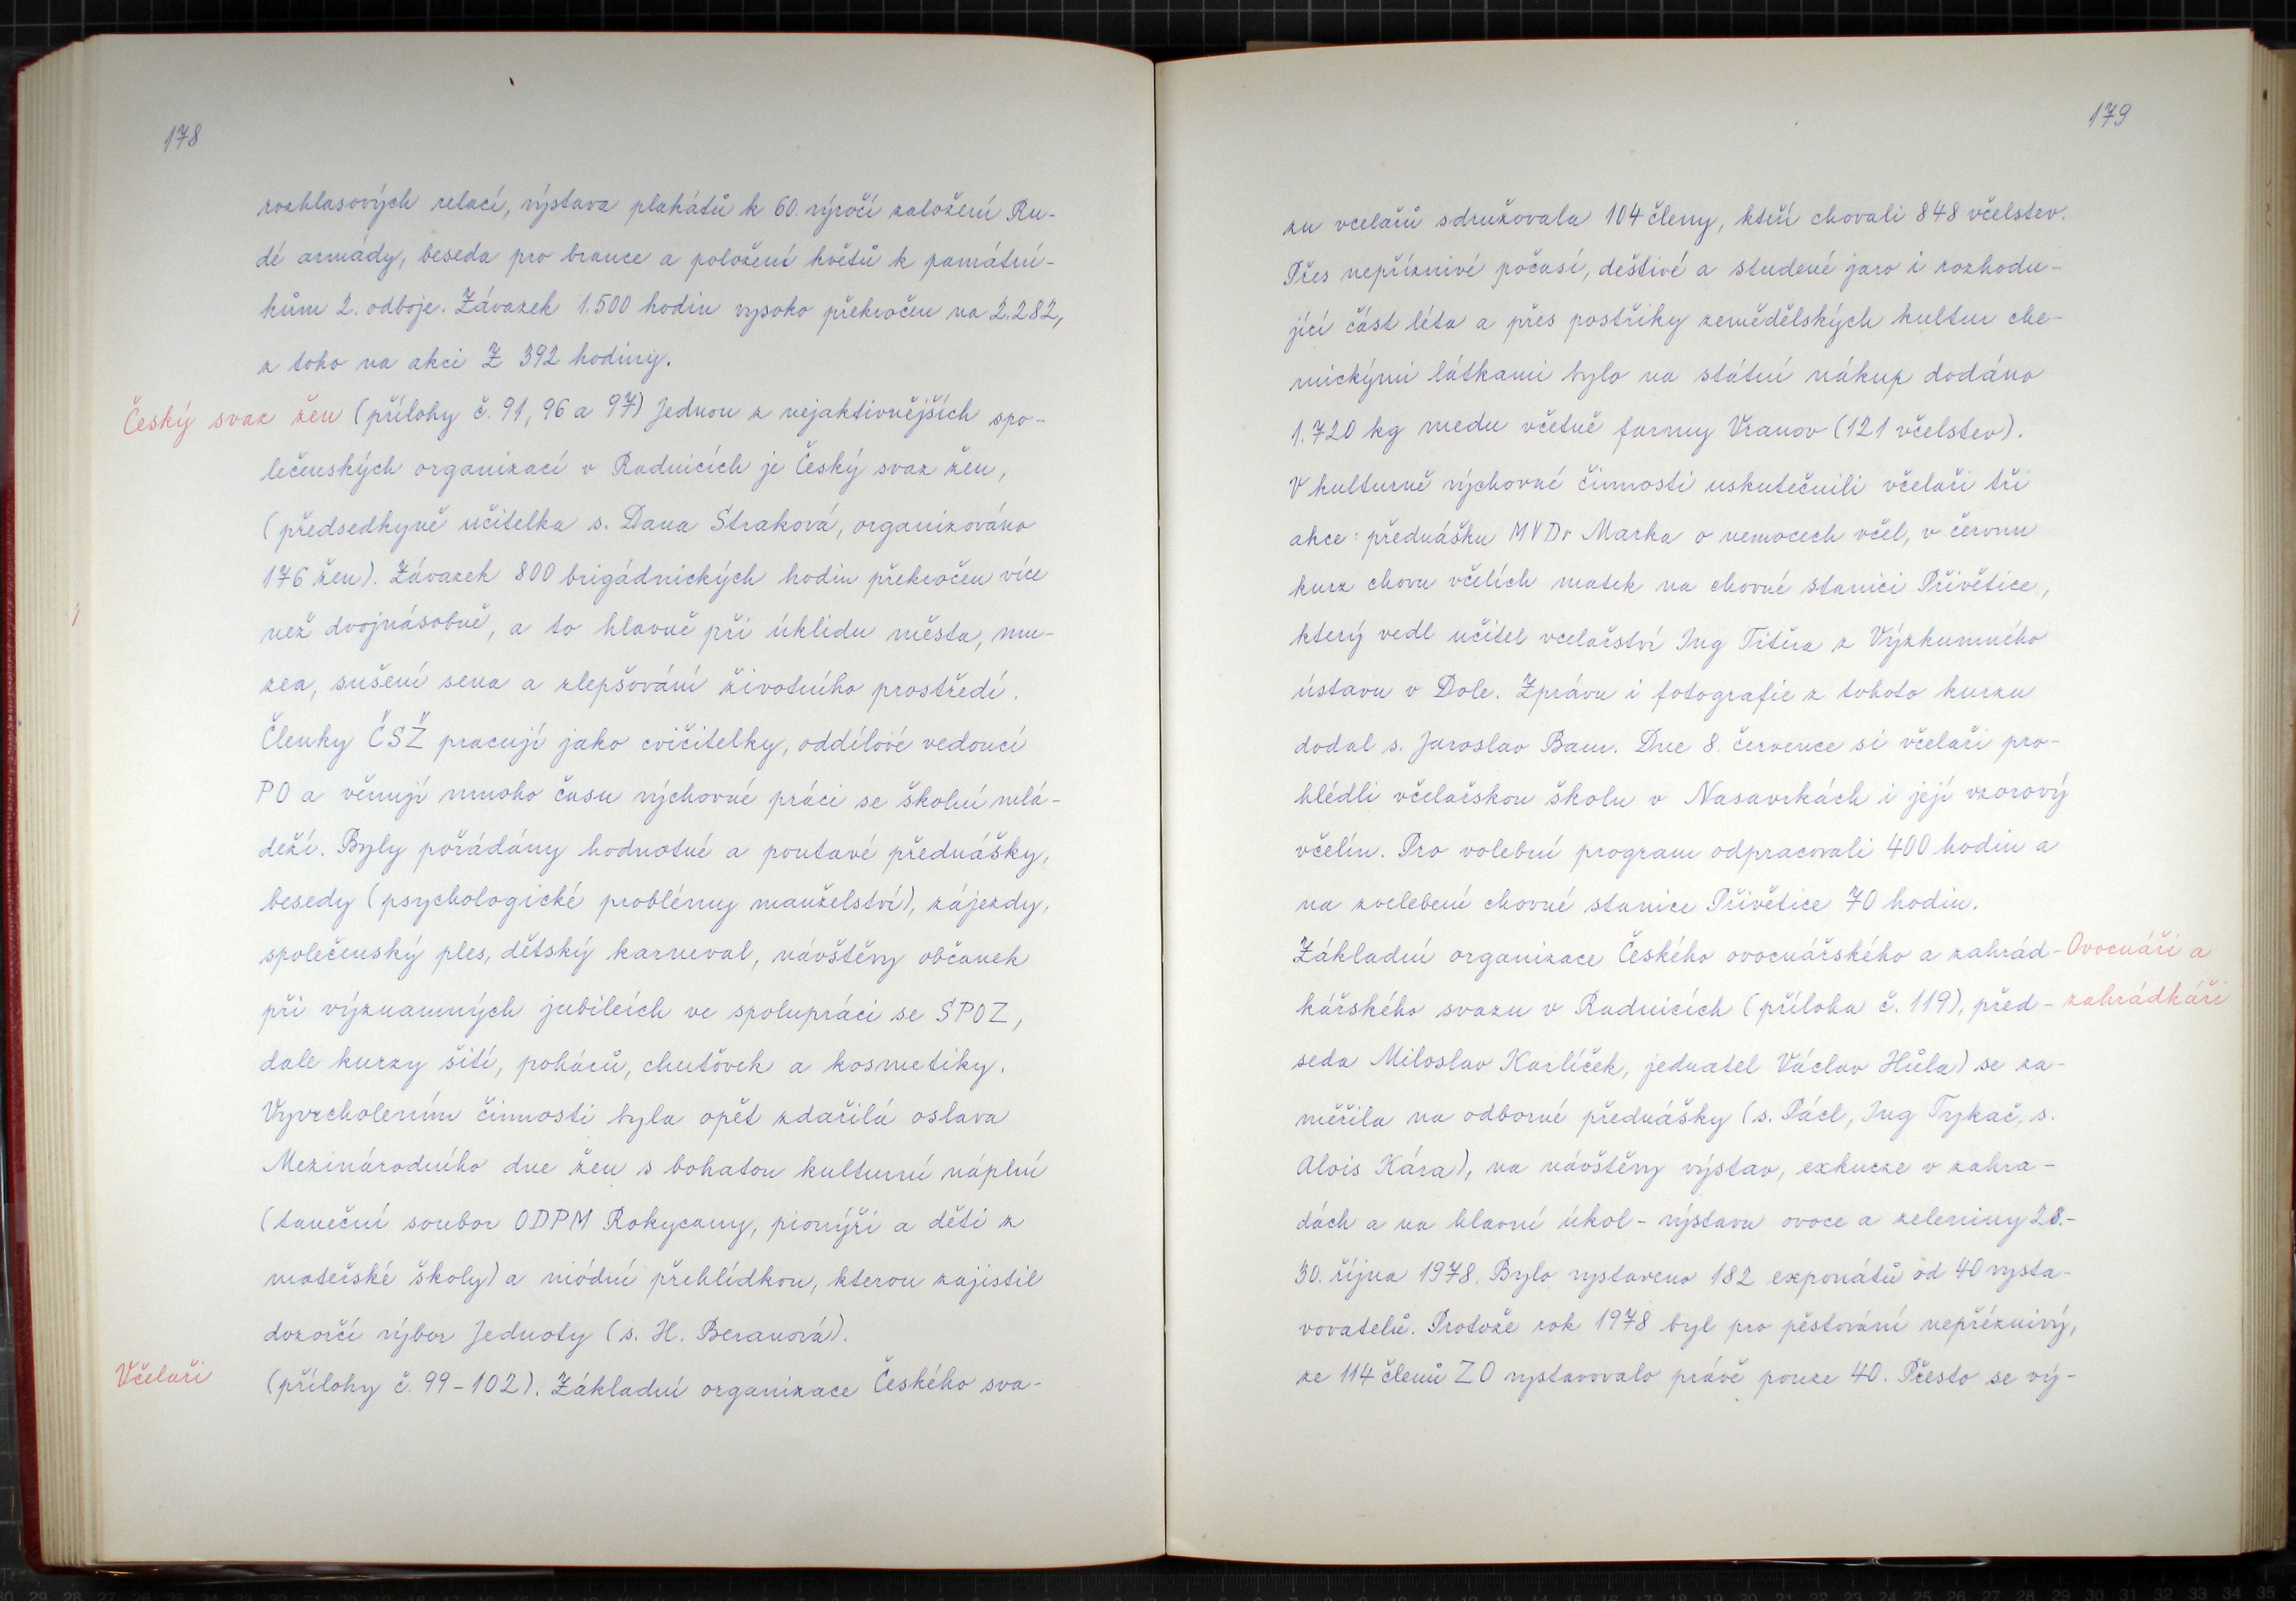 178
rozhlasových relací, výstava plakátů k 60. výročí založení Ru-
dé armády, beseda pro brance a položení květů k památní-
kům 2. odboje. Závazek 1.500 hodin vysoko překročen na 2.282,
z toho na akci Z 392 hodiny.
Český svaz žen (přílohy č. 91, 96 a 97) Jednou z nejaktivnějších spo-
lečenských organizací v Radnicích je Český svaz žen,
(předsedkyně učitelka s. Dana Straková, organizováno
176 žen). Závazek 800 brigádnických hodin překročen více
než dvojnásobně, a to hlavně při úklidu města, mu-
zea, sušení sena a zlepšování životního prostředí.
Členky ČSŽ pracují jako cvičitelky, oddílové vedoucí
PO a věnují mnoho času výchovné práci se školní mlá-
deží. Byly pořádány hodnotné a poutavé přednášky,
besedy (psychologické problémy manželství), zájezdy,
společenský ples, dětský karneval, návštěvy občanek
při významných jubileích ve spolupráci se SPOZ,
dale kurzy šití, pohárů, chuťovek a kosmetiky.
Vyvrcholením činnosti byla opět zdařilá oslava
Mezinárodního dne žen s bohatou kulturní náplní
(taneční soubor ODPM Rokycany, pionýři a děti z
mateřské školy) a módní přehlídkou, kterou zajistil
dozorčí výbor Jednoty (s. H. Beranová).
Včelaři (přílohy č. 99-102). Základní organizace Českého sva-
179
zu vcelařů sdružovala 104 členy, kteří chovali 848 včelstev.
Přes nepříznivé počasí, deštivé a studené jaro i rozhodu-
jící část léta a přes postřiky zemědělských kultur che-
mickými látkami bylo na státní nákup dodáno
1.720 kg medu včetně farmy Vranov (121 včelstev).
V kulturně výchovné činnosti uskutečnili včelaři tři
akce: přednášku MVDr Marka o nemocech včel, v červnu
kurz chovu včelích matek na chovné stanici Přivětice,
který vedl učitel vcelařství Ing Titěra z Výzkumného
ústavu v Dole. Zprávu i fotografie z tohoto kurzu
dodal s. Jaroslav Baum. Dne 8. července si včelaři pro-
hlédli včelařskou školu v Nasavrkách i její vzorový
včelín. Pro volební program odpracovali 400 hodin a
na zvelebení chovné stanice Přivětice 70 hodin.
Základní organizace Českého ovocnářského a zahrád- Ovocnáři a
kářského svazu v Radnicích (příloha č. 119), před- zahrádkáři
seda Miloslav Karlíček, jednatel Václav Hůla) se za-
měřila na odborné přednášky (s. Pácl, Ing Tykač, s.
Alois Kára), na návštěvy výstav, exkurze v zahra-
dách a na hlavní úkol - výstavu ovoce a zeleniny 28.-
30. října 1978. Bylo vystaveno 182 exponátů od 40 vysta-
vovatelů. Protože rok 1978 byl pro pěstování nepříznivý,
ze 114 členů ZO vystavovalo právě pouze 40. Přesto se vý-